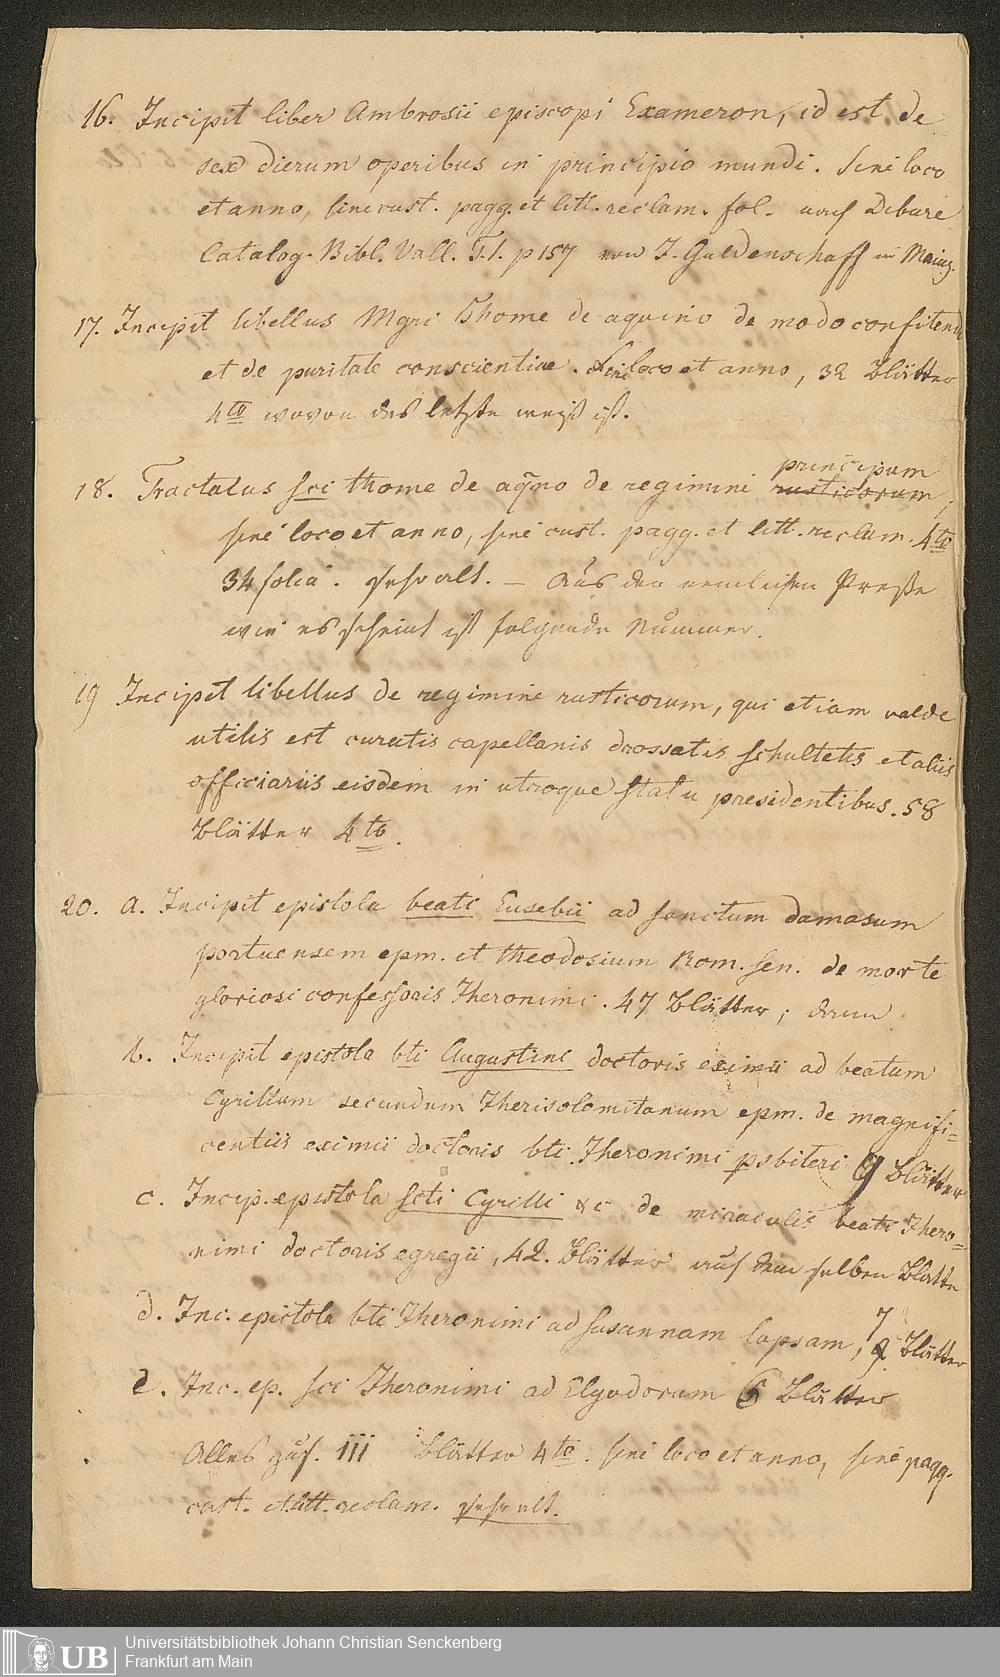 16. Incipit liber Ambrosii episcopi Exameron, id est de
sex dierum operibus in principio mundi. sine loco
et anno, sine cust. pagg. et litt. reclam. fol. nach Debure
Catalog. Bibl. Vall. T. 1. p 157 von J. Guldenschaff in Mainz.
17. Incipit libellus Mgri Thome de aquino de modo confitendi
et de puritate conscientiae. Sine loco et anno, 32 Blätter
4to wovon das letzte weiß ist.
principum
18. Tractatus sci thome de aqno de regimini rusticorum,
sine loco et anno, sine cust. pagg. et litt. reclam. 4to
34 folia. sehr alt. — Aus der nemlichen Preße
wie es scheint ist folgende Nummer.
19 Incipit libellus de regimine rusticorum, qui etiam valde
utilis est curatis capellanis drossatis schultetis et aliis
officiariis eisdem in utroque statu presidentibus. 58
Blätter 4to.
20. a. Incipit epistola beati Eusebii ad sanctum damasum
portuensem epm. et theodosium Rom. sen. de morte
gloriosi confessoris Iheronimi. 47 Blätter; dann
b. Incipit epistola bti Augustini doctoris eximii ad beatum
Cyrillum secundum Iherisolomitanum epm. de magnifi=
centiis eximii doctoris bti Iheronimi psbiteri 9 Blätter
c. Incip. epistola scti Cyrilli &c de miraculis beati Ihero=
nimi doctoris egregii, 42. Blätter auf dem selben Blatte
d. Inc. epistola bti Iheronimi ad susannam lapsam, 7 Blätter
e. Inc. ep. sci Iheronimi ad Elyodorum 6 Blätter
Alles zus. 111 Blätter 4to. sine loco et anno, sine pagg.
cust. et litt. reclam. sehr alt.
Universitätsbibliothek Johann Christian Senckenberg
UB
Frankfurt am Main